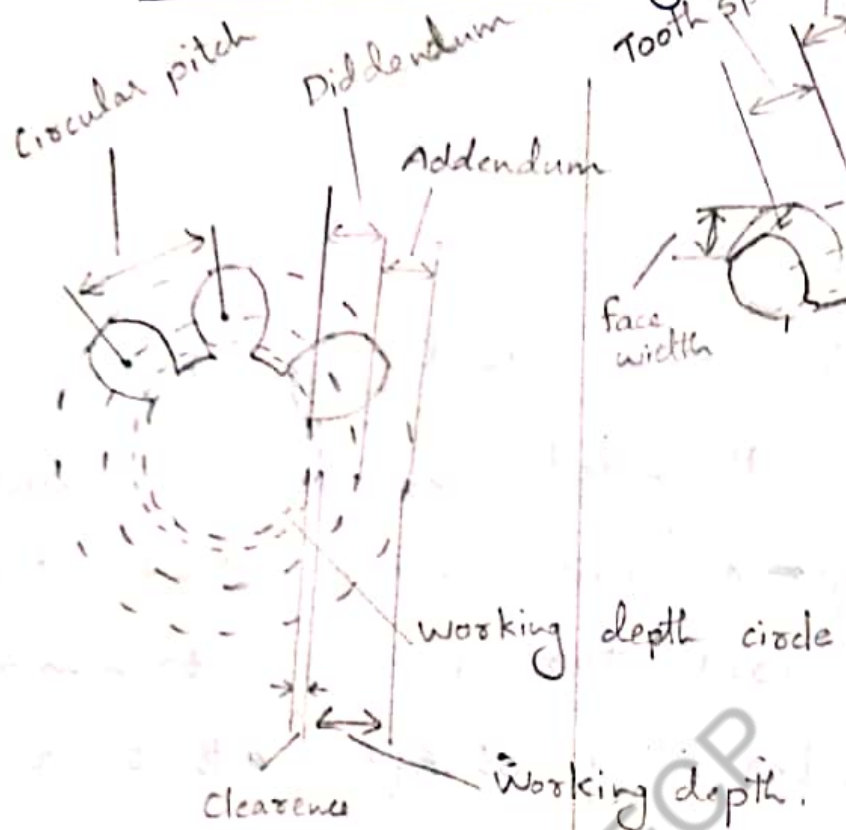 Circular pitch
Diddendum
Addendum
Tooth
face
width
Working depth circle
Clearence
Working depth.
TCP